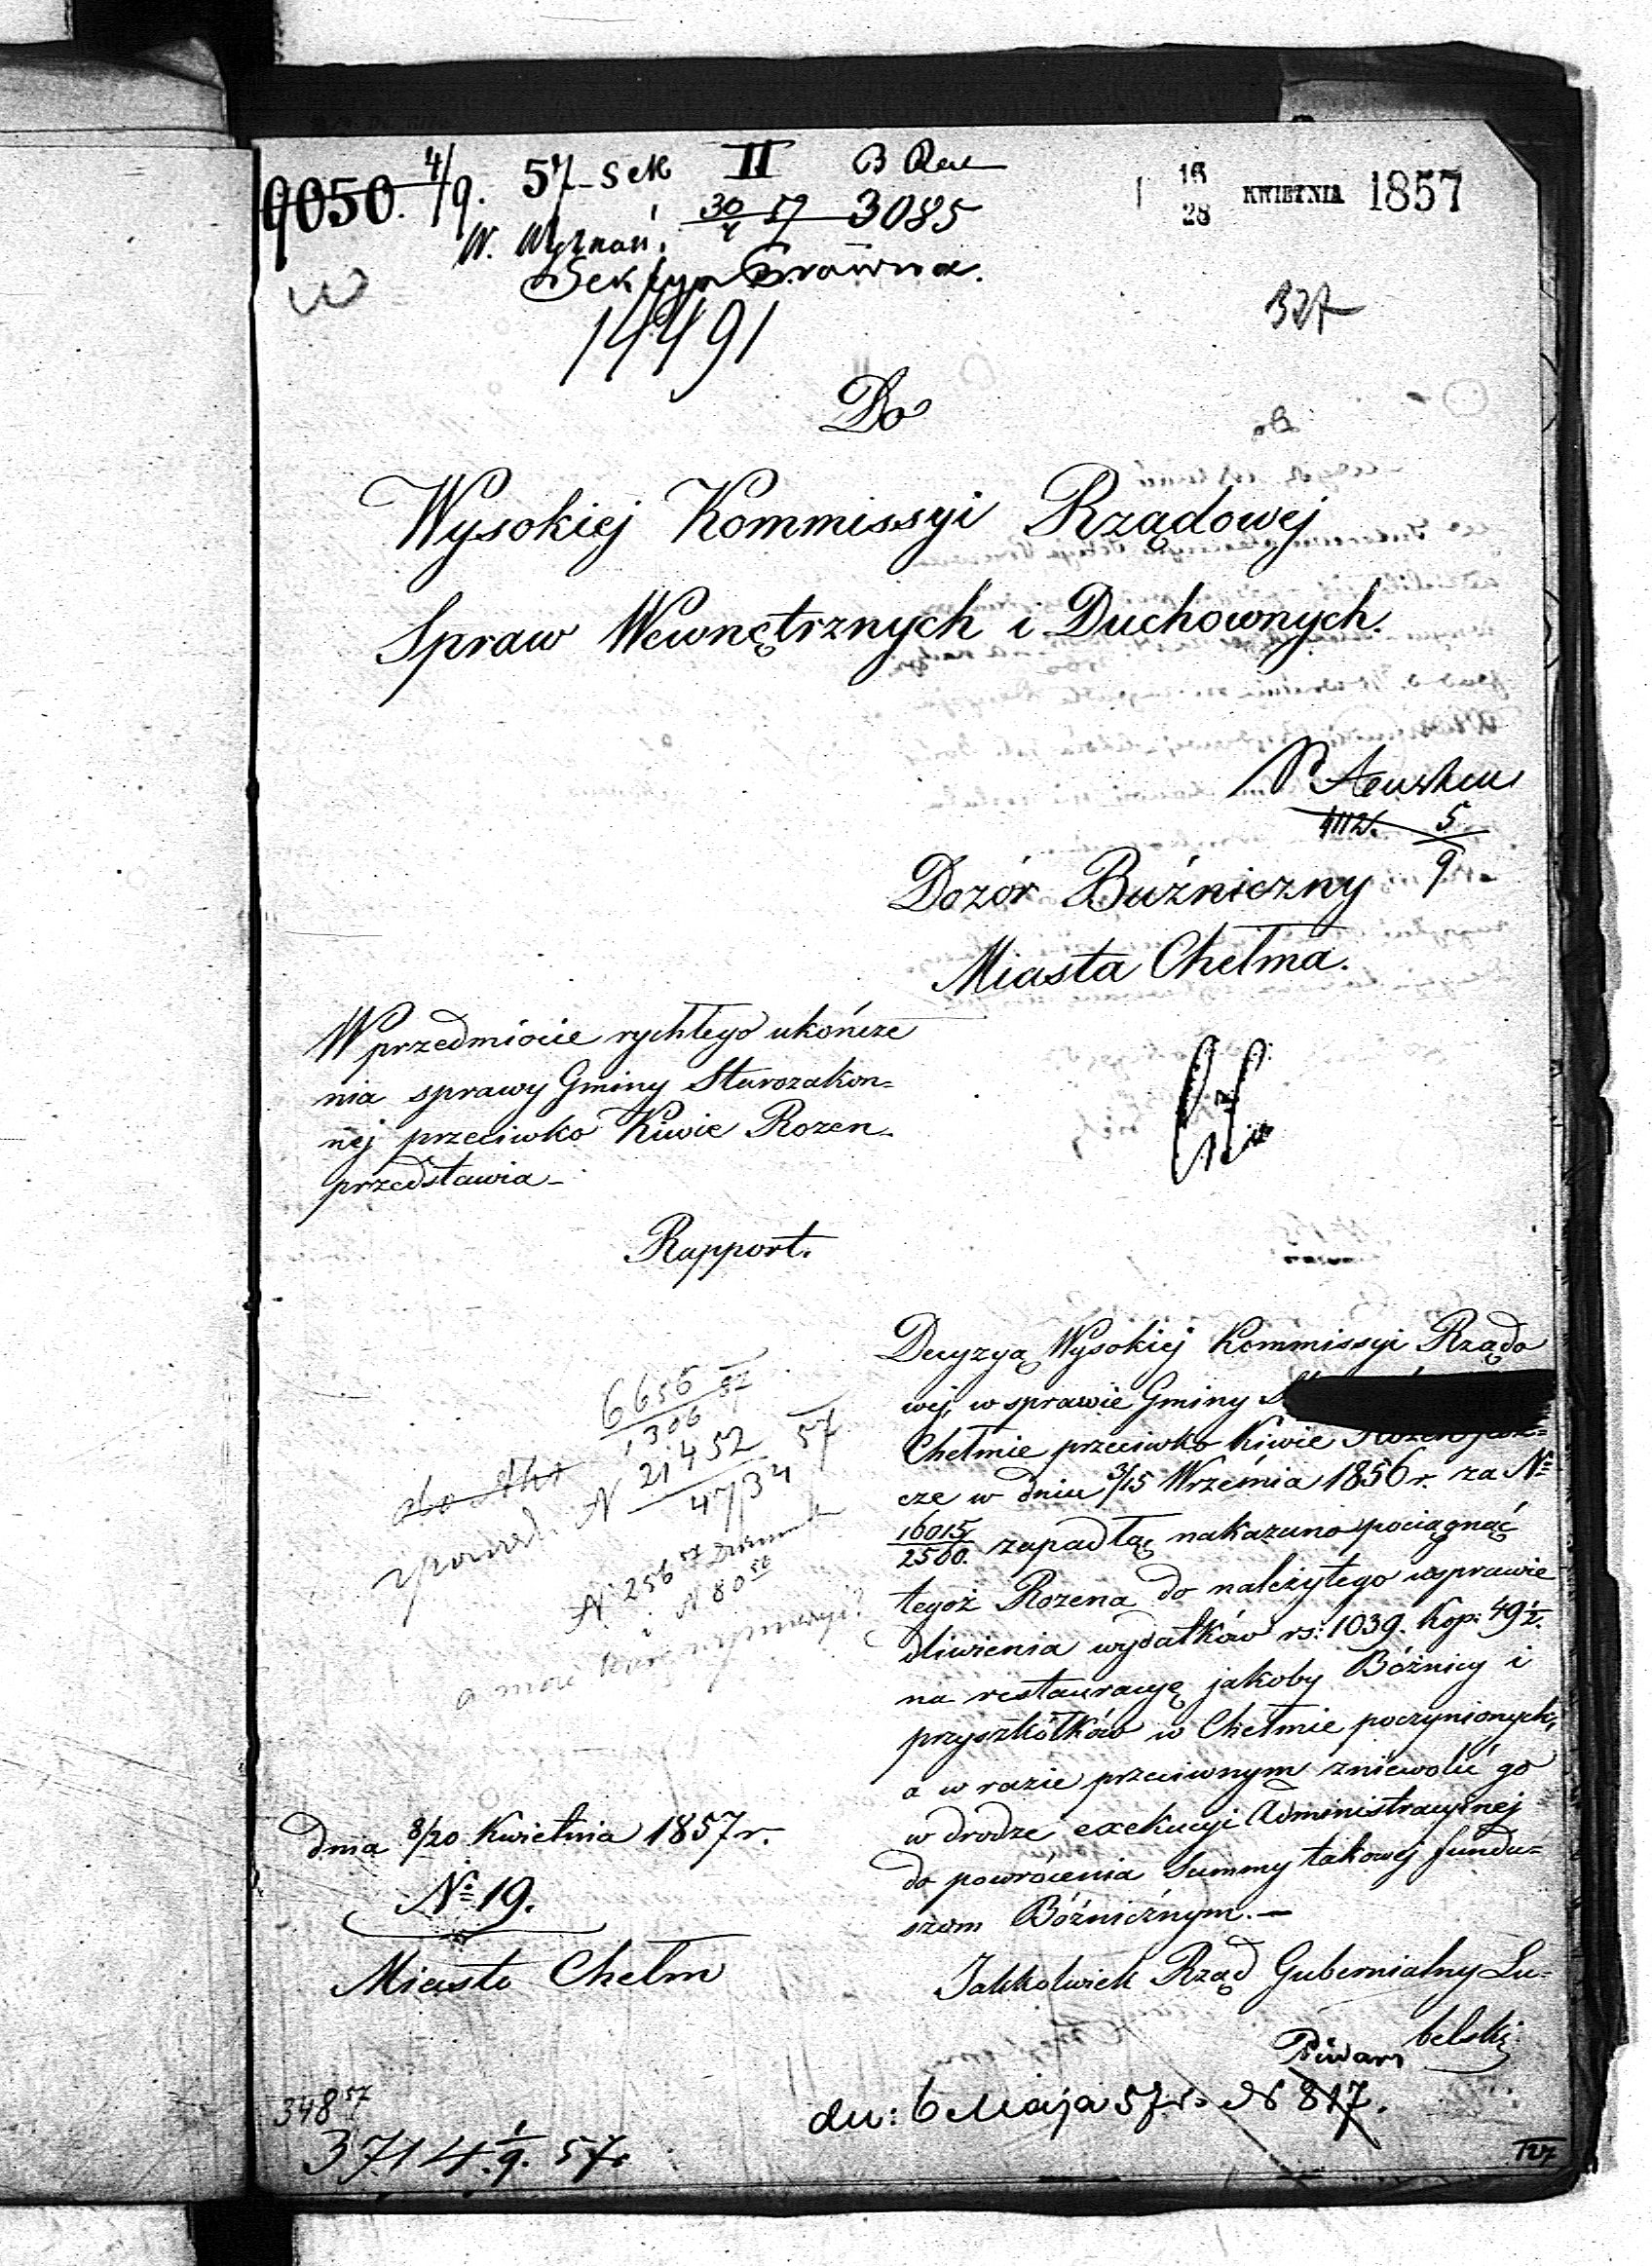 9050. 4/9. 57 - Sek II
16/28 KWIETNIA 1857
W. Wyznań. 30/4 57 3085
Sekcya Prawna.
14491
327
Do
Wysokiej Kommissyi Rządowej
Spraw Wewnętrznych i Duchownych.
5/9
Dozór Buźniczny
Miasta Chełma.
W przedmiocie rychłego ukończe
nia sprawy Gminy Starozakon=
nej przeciwko Kiwie Rozen
przedstawia -
Rapport.
Decyzyą Wysokiej Kommissyi Rządo
wej, w sprawie Gminy
Chełmie przeciwko Kiwie Rozen jesz=
cze w dniu 3/15 Września 1856 r. za №
16015/2560. zapadłą nakazano pociągnąć
tegoż Rozena do należytego usprawie
dliwienia wydatków rs: 1039. Kop: 49½.
na restauracyę jakoby Bóżnicy i
przyszkółków w Chełmie poczynionych,
a w razie przeciwnym zniewolić go
w drodze exekucyi Administracyjnej
do powrócenia Summy takowej fundu=
szom Bóżnicznym. —
Jakkolwiek Rząd Gubernialny Lu=
belski
6656/1306 57
N 21452/4734 57
N 256 57
N 80 56
dnia 8/20 Kwietnia 1857 r.
№ 19.
Miasto Chełm
dn: 6 Maja 57 r. N 817.
348 57
3714 1/9. 57.
127